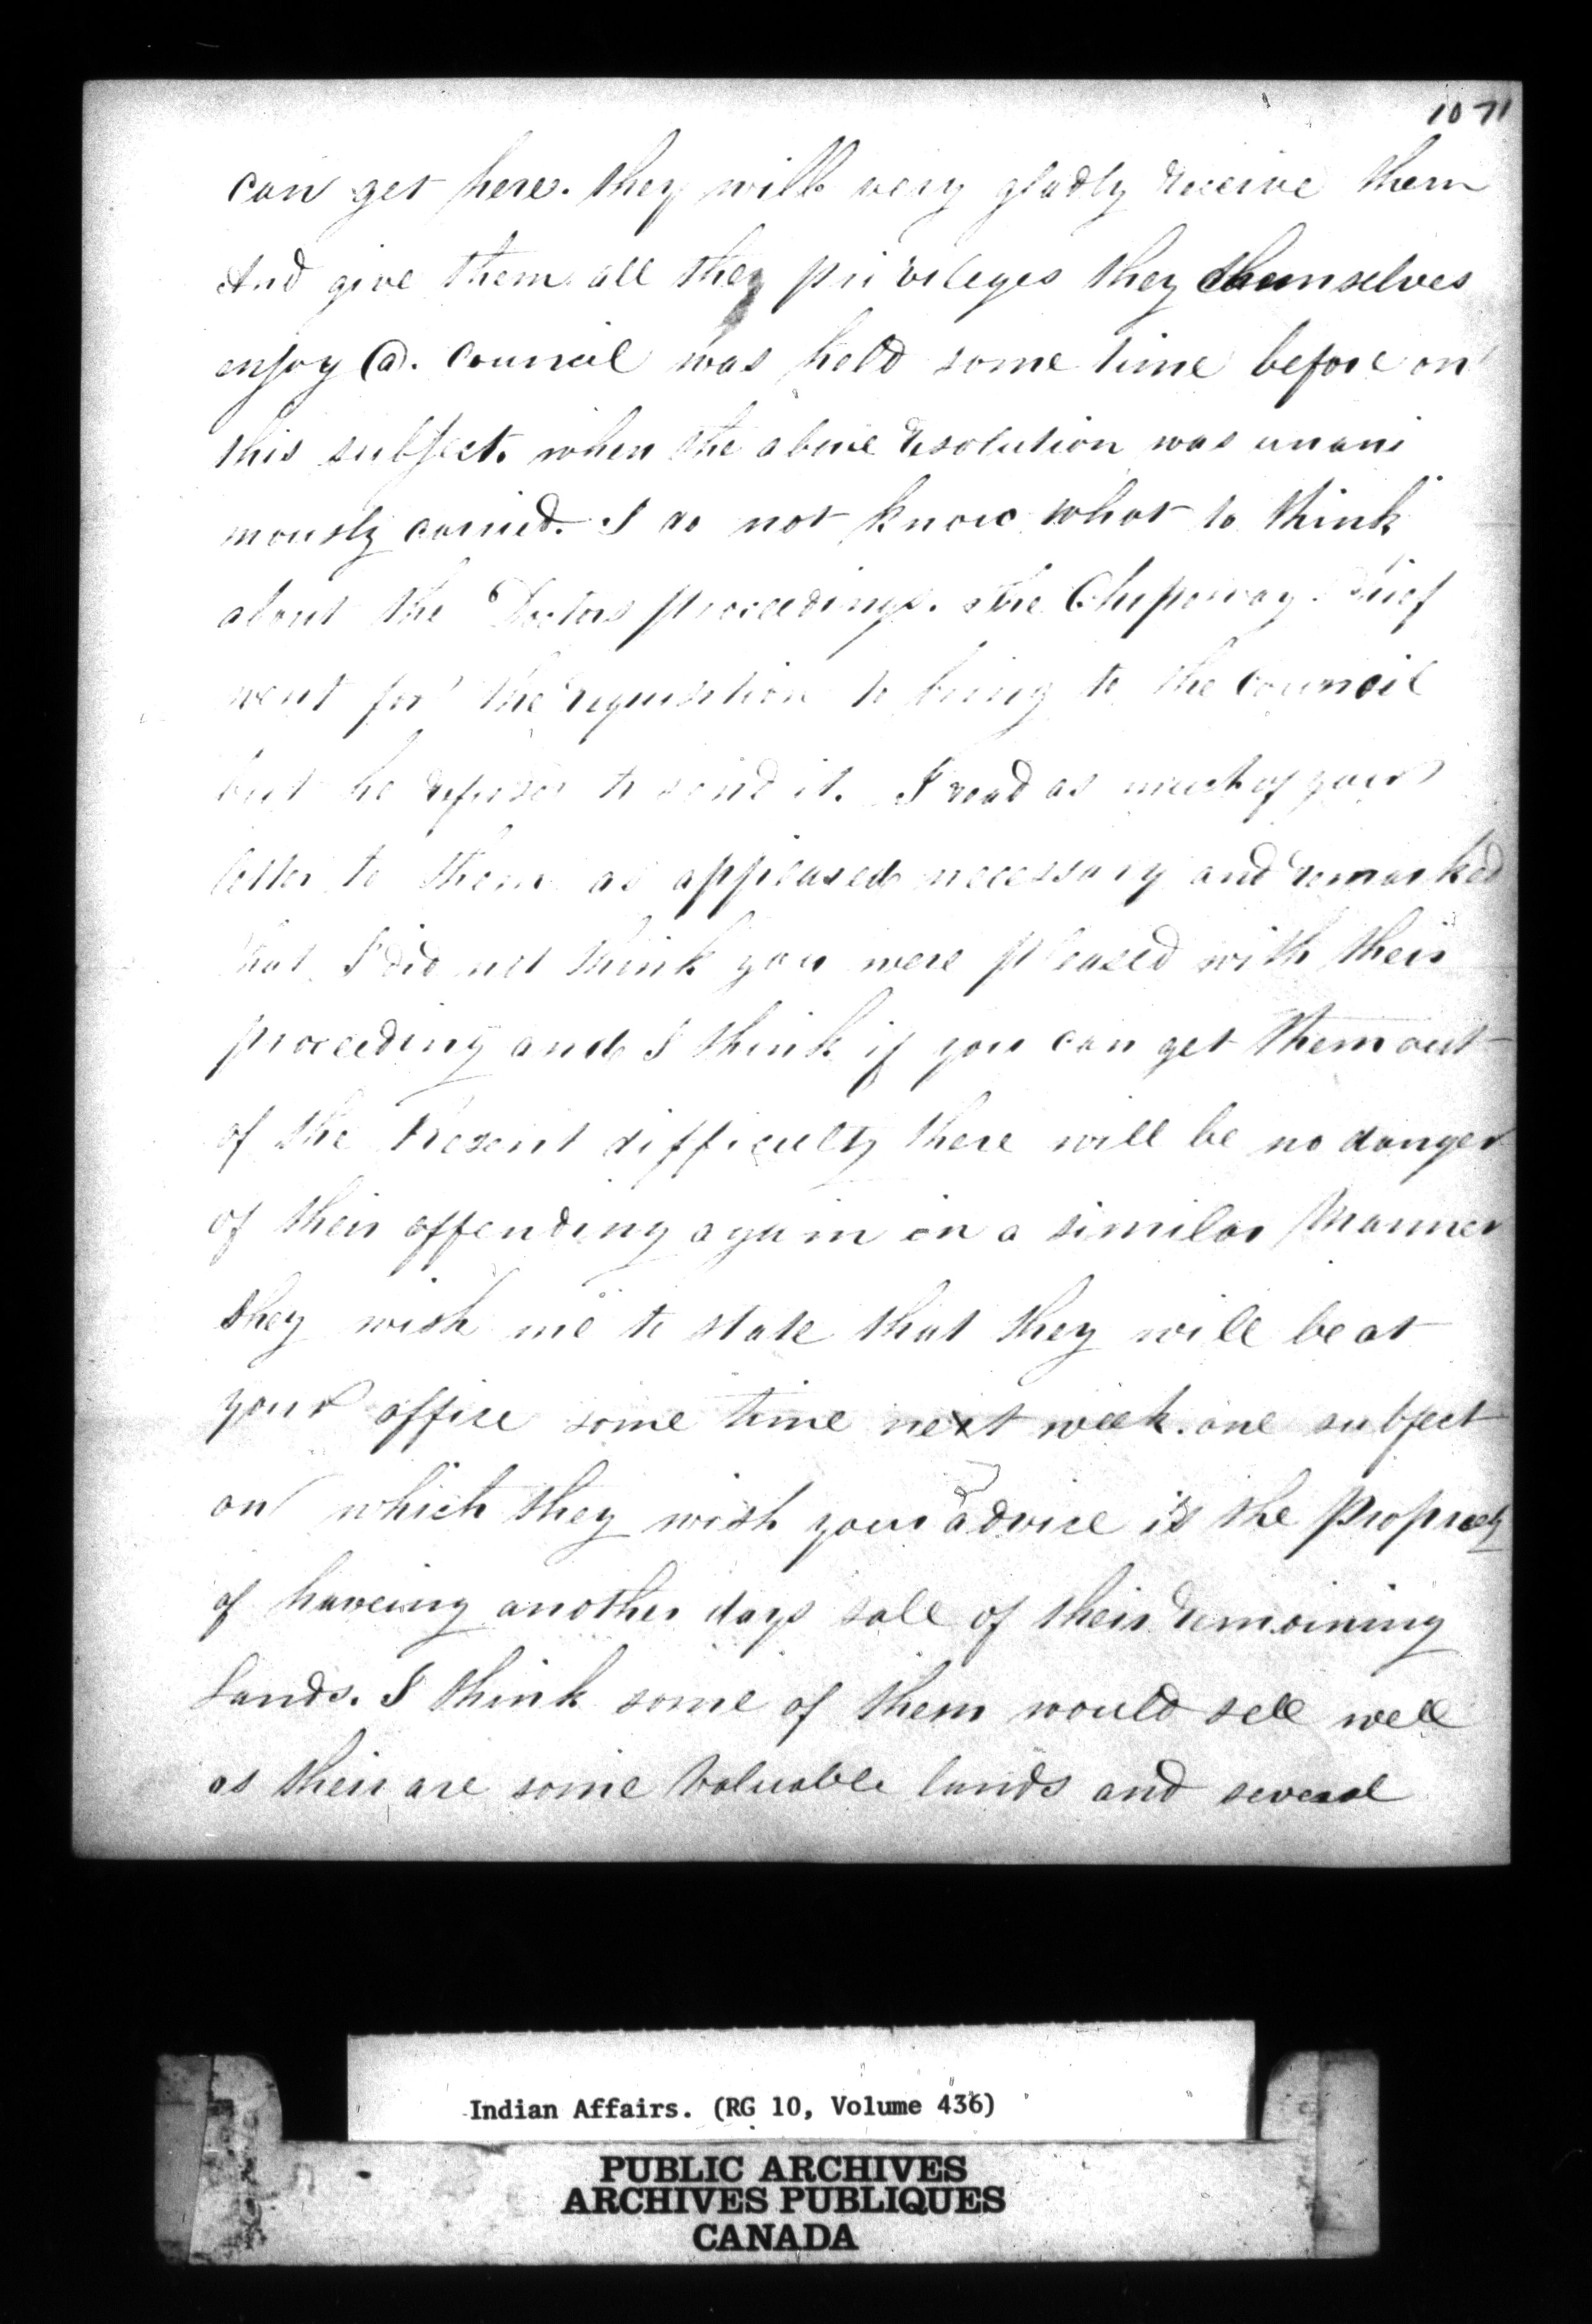 1071
can get here. they will very gladly receive them
And give them all they privileges they themselves
enjoy (a). Council was held some time before on
this subject. when the above resolution was unani
mously carried. I do not know what to think
about the Doctors proceedings. The Chipeway Chief
went for the requisition to bring to the Council
but he refused to send it. I read as much of your
letter to them as appeared necessary and remarked
that I did not think you were pleased with their
proceeding and I think if you can get them out
of the Present difficulty there will be no danger
of their offending again in a similar Manner
they wish me to state that they will be at
your office some time next week. one subject
on which they wish your advice is the Propriety
of haveing another days sale of their remaining
Lands. I think some of them would sell well
as their are some Valuable lands and several
Indian Affairs. (RG 10, Volume 436)
PUBLIC ARCHIVES
ARCHIVES PUBLIQUES
CANADA